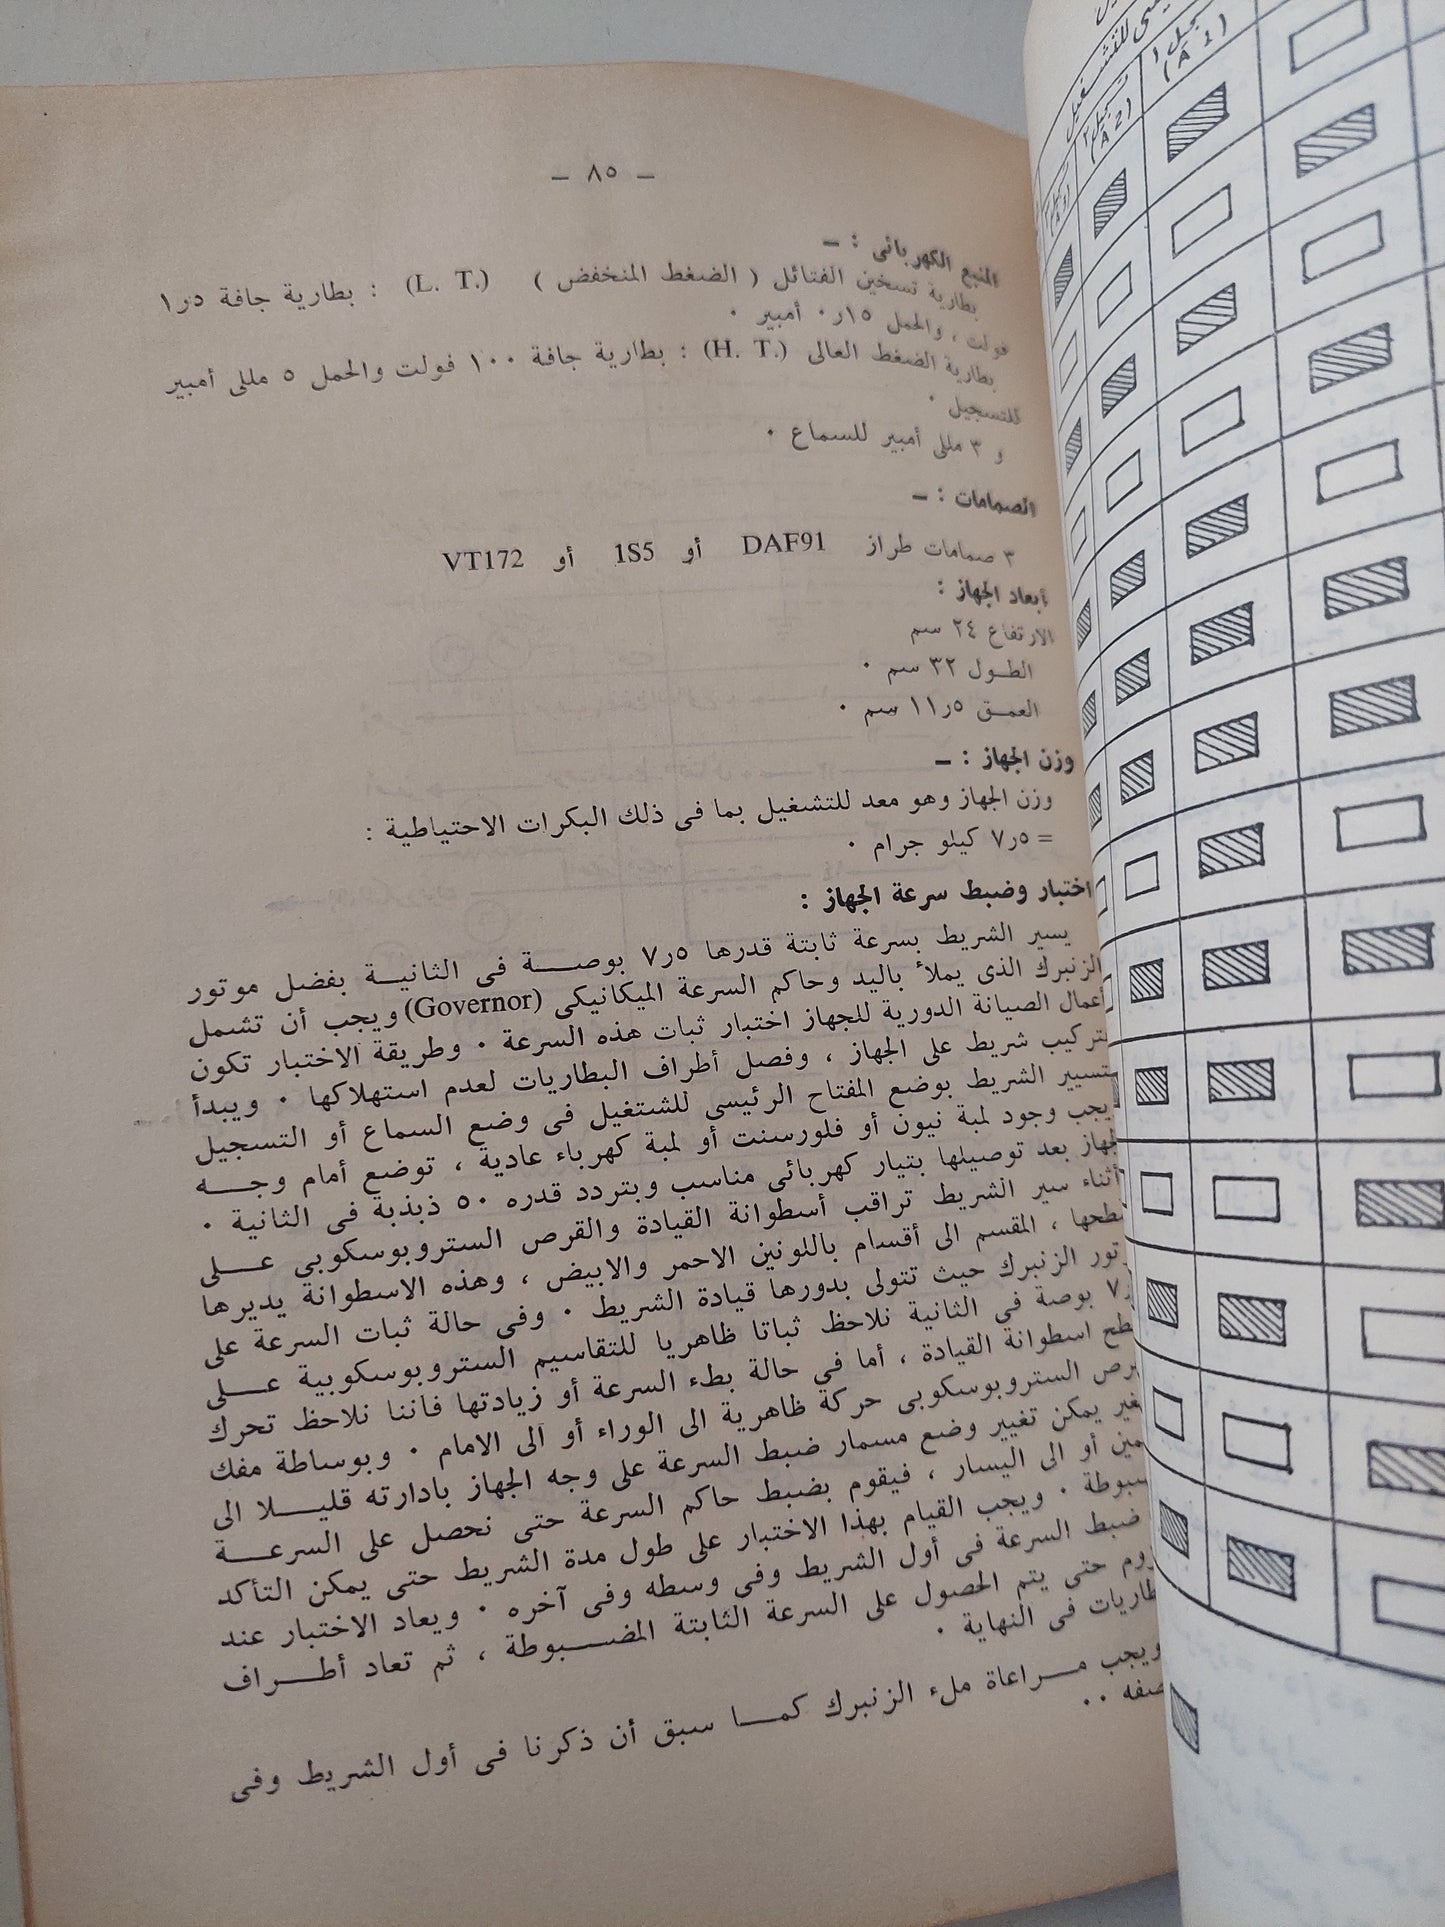 — ٨٥ —
المنبع الكهربائى : —
بطارية تسخين الفتائل ( الضغط المنخفض ) (L. T.) : بطارية جافة ٥ر١
فولت ، والحمل ١٥ر٠ أمبير .
بطارية الضغط العالى (H. T.) : بطارية جافة ١٠٠ فولت والحمل ٥ مللى أمبير
للتسجيل .
و ٣ مللى أمبير للسماع .
الصمامات : —
٣ صمامات طراز DAF91 أو 1S5 أو VT172
أبعاد الجهاز :
الارتفاع ٢٤ سم
الطول ٣٢ سم .
العمق ٥ر١١ سم .
وزن الجهاز : —
وزن الجهاز وهو معد للتشغيل بما فى ذلك البكرات الاحتياطية :
= ٥ر٧ كيلو جرام .
اختبار وضبط سرعة الجهاز :
يسير الشريط بسرعة ثابتة قدرها ٥ر٧ بوصة فى الثانية بفضل موتور
الزنبرك الذى يملأ باليد وحاكم السرعة الميكانيكى (Governor) ويجب أن تشمل
أعمال الصيانة الدورية للجهاز اختبار ثبات هذه السرعة . وطريقة الاختبار تكون
بتركيب شريط على الجهاز ، وفصل أطراف البطاريات لعدم استهلاكها . ويبدأ
بتسيير الشريط بوضع المفتاح الرئيسى للشتغيل فى وضع السماع أو التسجيل
ويجب وجود لمبة نيون أو فلورسنت أو لمبة كهرباء عادية ، توضع أمام وجه
الجهاز بعد توصيلها بتيار كهربائى مناسب وبتردد قدره ٥٠ ذبذبة فى الثانية .
أثناء سير الشريط تراقب أسطوانة القيادة والقرص الستروبوسكوبى على
سطحها ، المقسم الى أقسام باللونين الاحمر والابيض ، وهذه الاسطوانة يديرها
الزنبرك حيث تتولى بدورها قيادة الشريط . وفى حالة ثبات السرعة على
ر٧ بوصة فى الثانية نلاحظ ثباتا ظاهريا للتقاسيم الستروبوسكوبية على
اسطوانة القيادة ، أما فى حالة بطء السرعة أو زيادتها فاننا نلاحظ تحرك
الستروبوسكوبى حركة ظاهرية الى الوراء أو الى الامام . وبوساطة مفك
يمكن تغيير وضع مسمار ضبط السرعة على وجه الجهاز بادارته قليلا الى
أو الى اليسار ، فيقوم بضبط حاكم السرعة حتى نحصل على السرعة
. ويجب القيام بهذا الاختبار على طول مدة الشريط حتى يمكن التأكد
ضبط السرعة فى أول الشريط وفى وسطه وفى آخره . ويعاد الاختبار عند
حتى يتم الحصول على السرعة الثابتة المضبوطة ، ثم تعاد أطراف
فى النهاية .
ويجب مراعاة ملء الزنبرك كما سبق أن ذكرنا فى أول الشريط وفى
. .
(A 1)
(A 2)